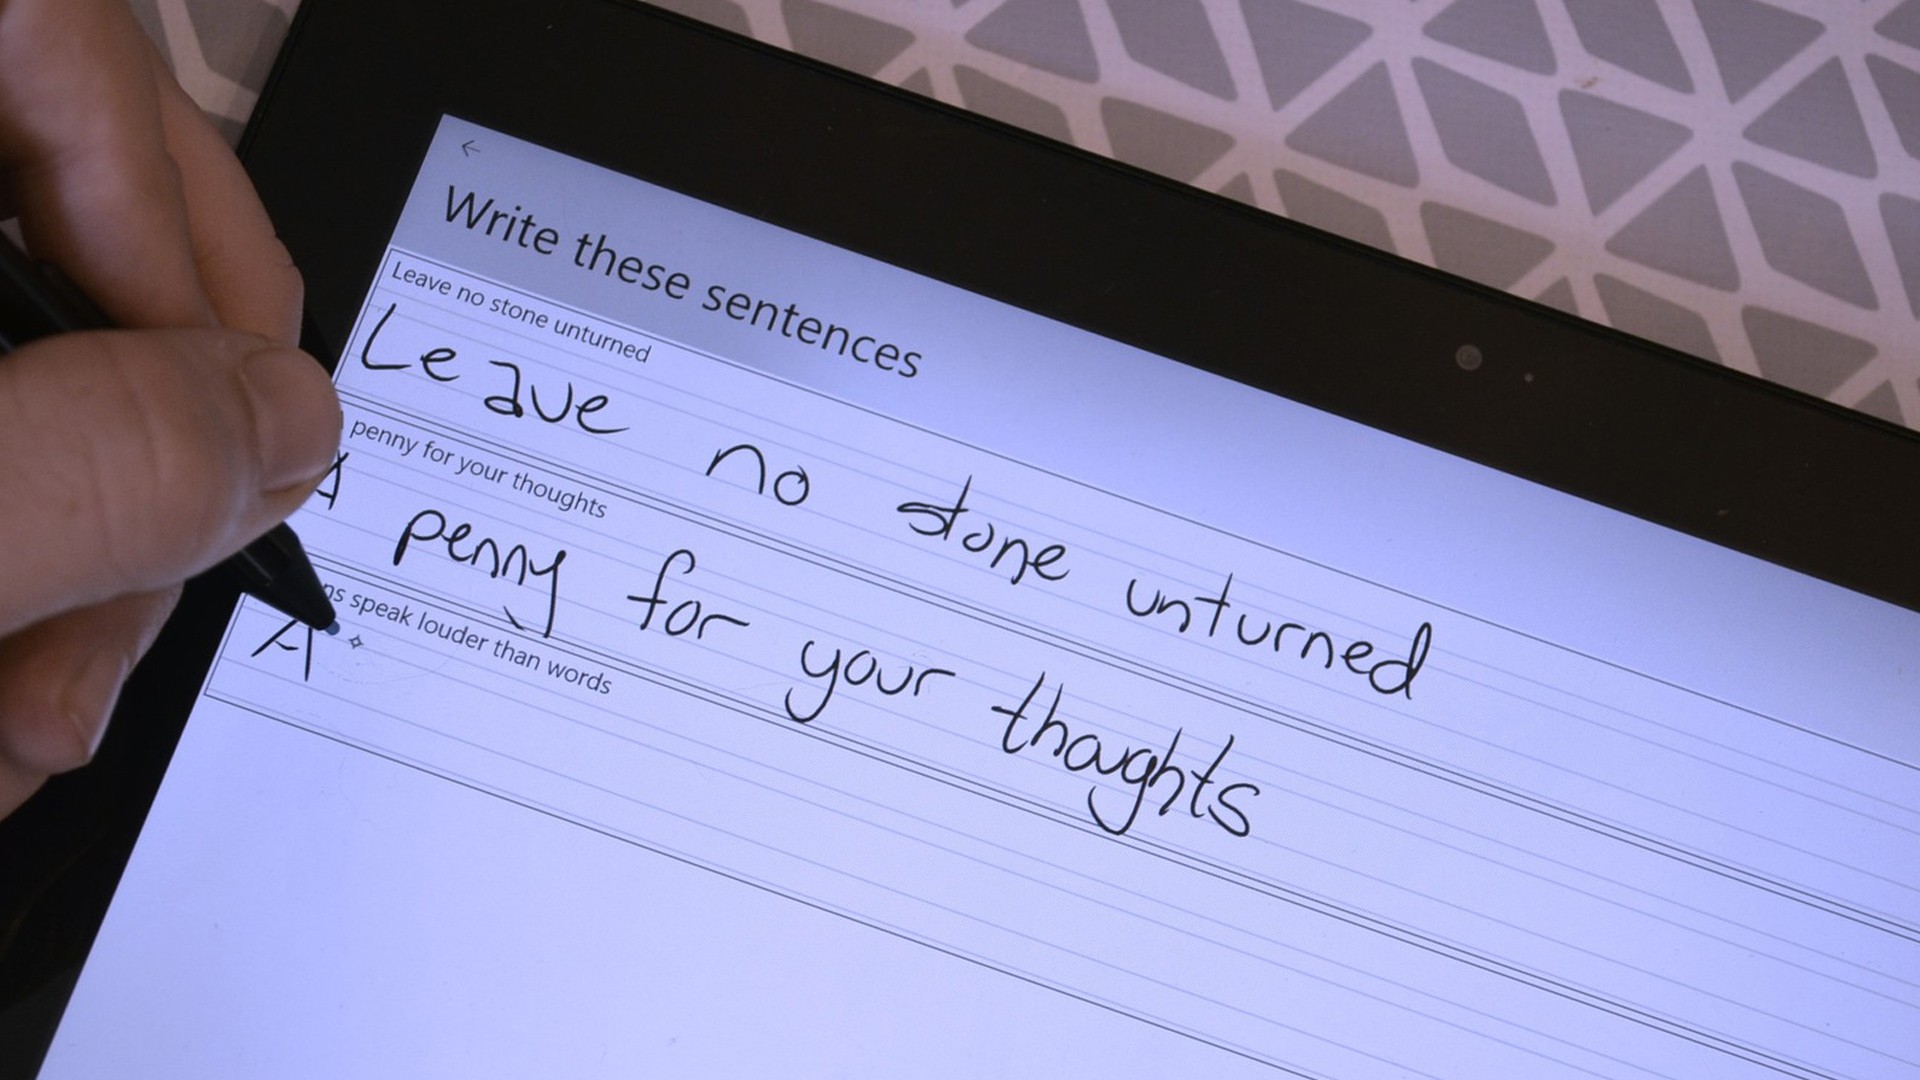 Write these sentences
Leave no stone unturned
Leave no stone unturned
penny for your thoughts
A penny for your thoughts
speak louder than words
A